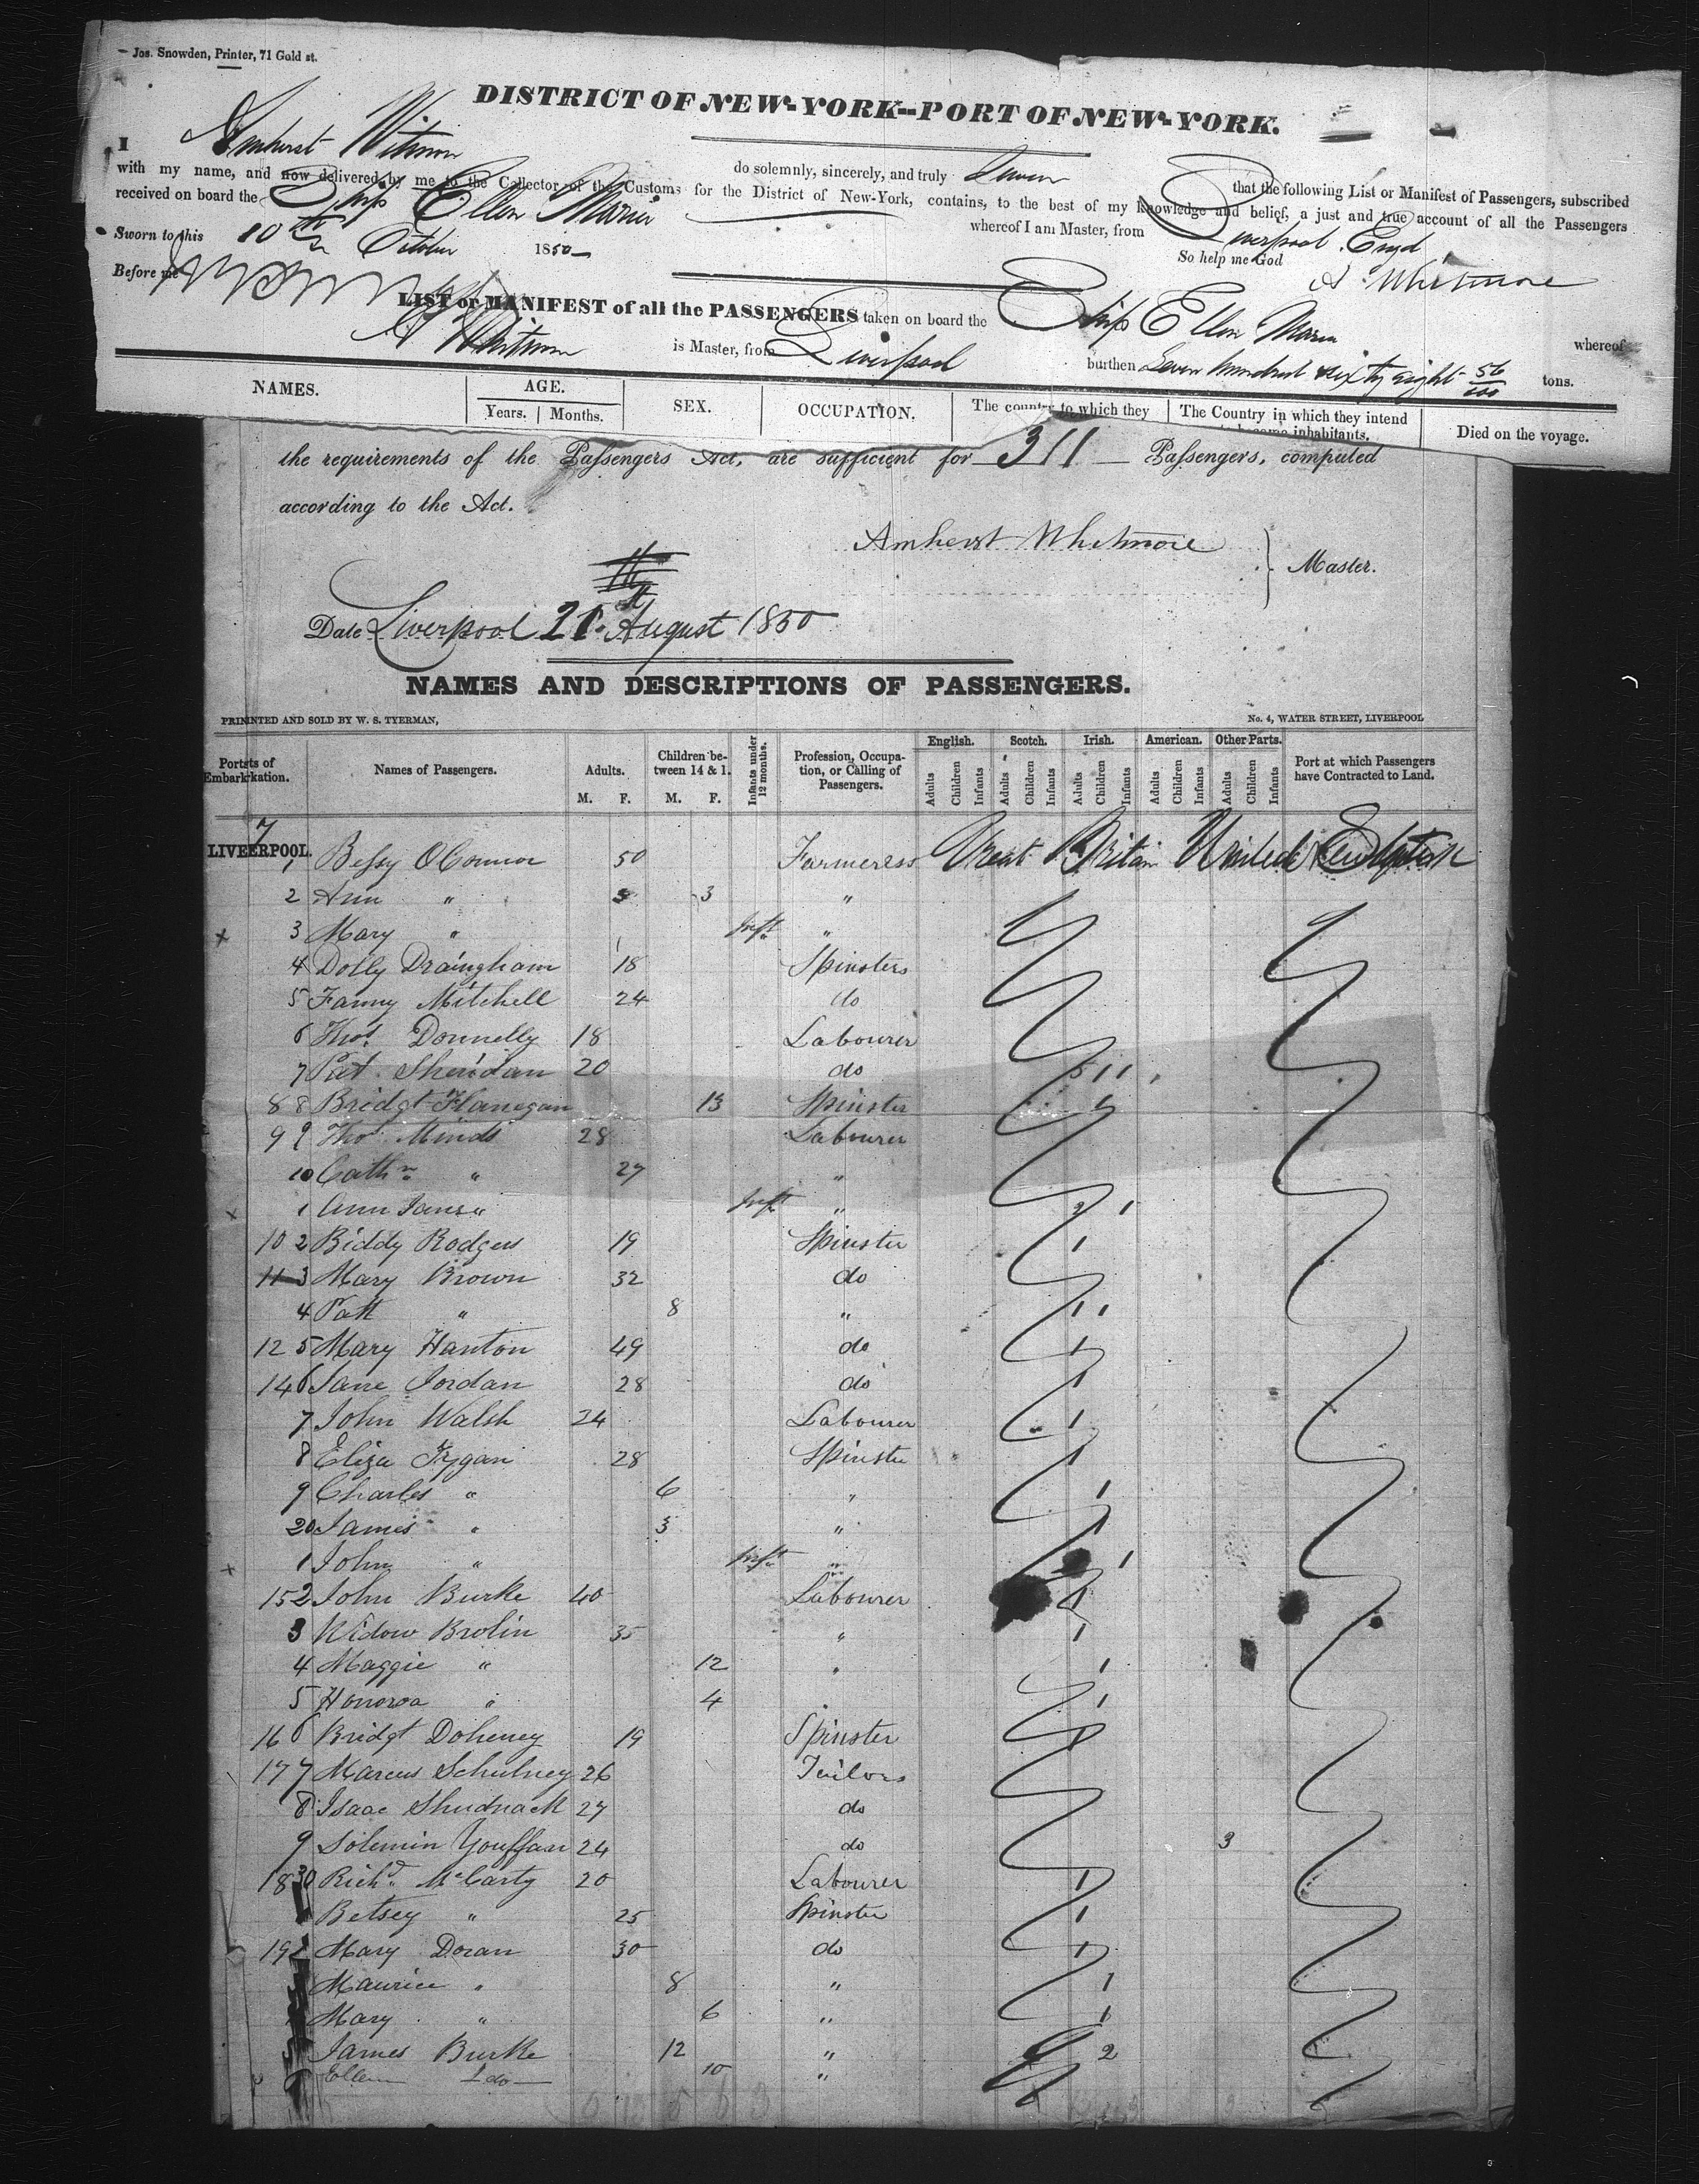 Jos. Snowden, Printer, 71 Gold st.
DISTRICT OF NEW-YORK--PORT OF NEW-YORK.
I Amherst Witmore do solemnly, sincerely, and truly Swear that the following List or Manifest of Passengers, subscribed
with my name, and now delivered by me to the Collector of the Customs for the District of New-York, contains, to the best of my knowledge and belief, a just and true account of all the Passengers
received on board the Ship Ellen Maria whereof I am Master, from Liverpool Engd
Sworn to this 10th October 1850 So help me God
Before me A Whitmore
LIST or MANIFEST of all the PASSENGERS taken on board the Ship Ellen Maria whereof
A Whitmore is Master, from Liverpool burthen Seven hundred & sixty eight 56/100 tons.
NAMES. AGE. Years. Months. SEX. OCCUPATION. The country to which they The Country in which they intend to become inhabitants. Died on the voyage.
the requirements of the Passengers Act, are sufficient for 311 Passengers, computed
according to the Act.
Amherst Whitmore
Master.
Date Liverpool 21st August 1850
NAMES AND DESCRIPTIONS OF PASSENGERS.
PRININTED AND SOLD BY W. S. TYERMAN, No. 4, WATER STREET, LIVERPOOL
Portsts of Embarkrkation. Names of Passengers. Adults. M. F. Children between 14 & 1. M. F. Infants under 12 months. Profession, Occupation, or Calling of Passengers. English. Scotch. Irish. American. Other Parts. Port at which Passengers have Contracted to Land.
Adults Children Infants Adults Children Infants Adults Children Infants Adults Children Infants Adults Children Infants
7
LIVEERPOOL.
1 Bessy OConnor 50 Farmeress Great Britain United
2 Ann " 3 "
x 3 Mary " Inft "
4 Dolly Draingham 18 Spinsters
5 Fanny Mitchell 24 do
6 Thos. Donnelly 18 Labourer
7 Pat. Sheridan 20 do 5 1 1
8 8 Bridgt Flanegan 13 Spinster 1
9 9 Thos. Minds 28 Labourer
10 Cathn " 27 "
x 1 Ann Jane " Inft " 2 1
10 2 Biddy Rodgers 19 Spinster 1
11 3 Mary Brown 32 do
4 Patt " 8 " 1 1
12 5 Mary Hanton 49 do 1
14 6 Jane Jordan 28 do 1
7 John Walsh 24 Labourer 1
8 Eliza Fygan 28 Spinster 1
9 Charles " 6 " 1
20 James " 3 " 1
x 1 John " Inft " 1
15 2 John Burke 40 Labourer 1
3 Widow Brolin 35 " 1
4 Maggie " 12 " 1
5 Honoroa " 4 1
16 6 Bridgt Doheney 19 Spinster 1
17 7 Marcus Schulney 26 Tailors
8 Isaac Shudnack 27 do
9 Solemin Youffan 24 do 3
18 30 Richd. McCarty 20 Labourer 1
Betsey " 25 Spinster 1
19 2 Mary Doran 30 do 1
Maurice " 8 " 1
Mary " 6 " 1
5 James Burke 12 " 2
6 Ellen do 10 "